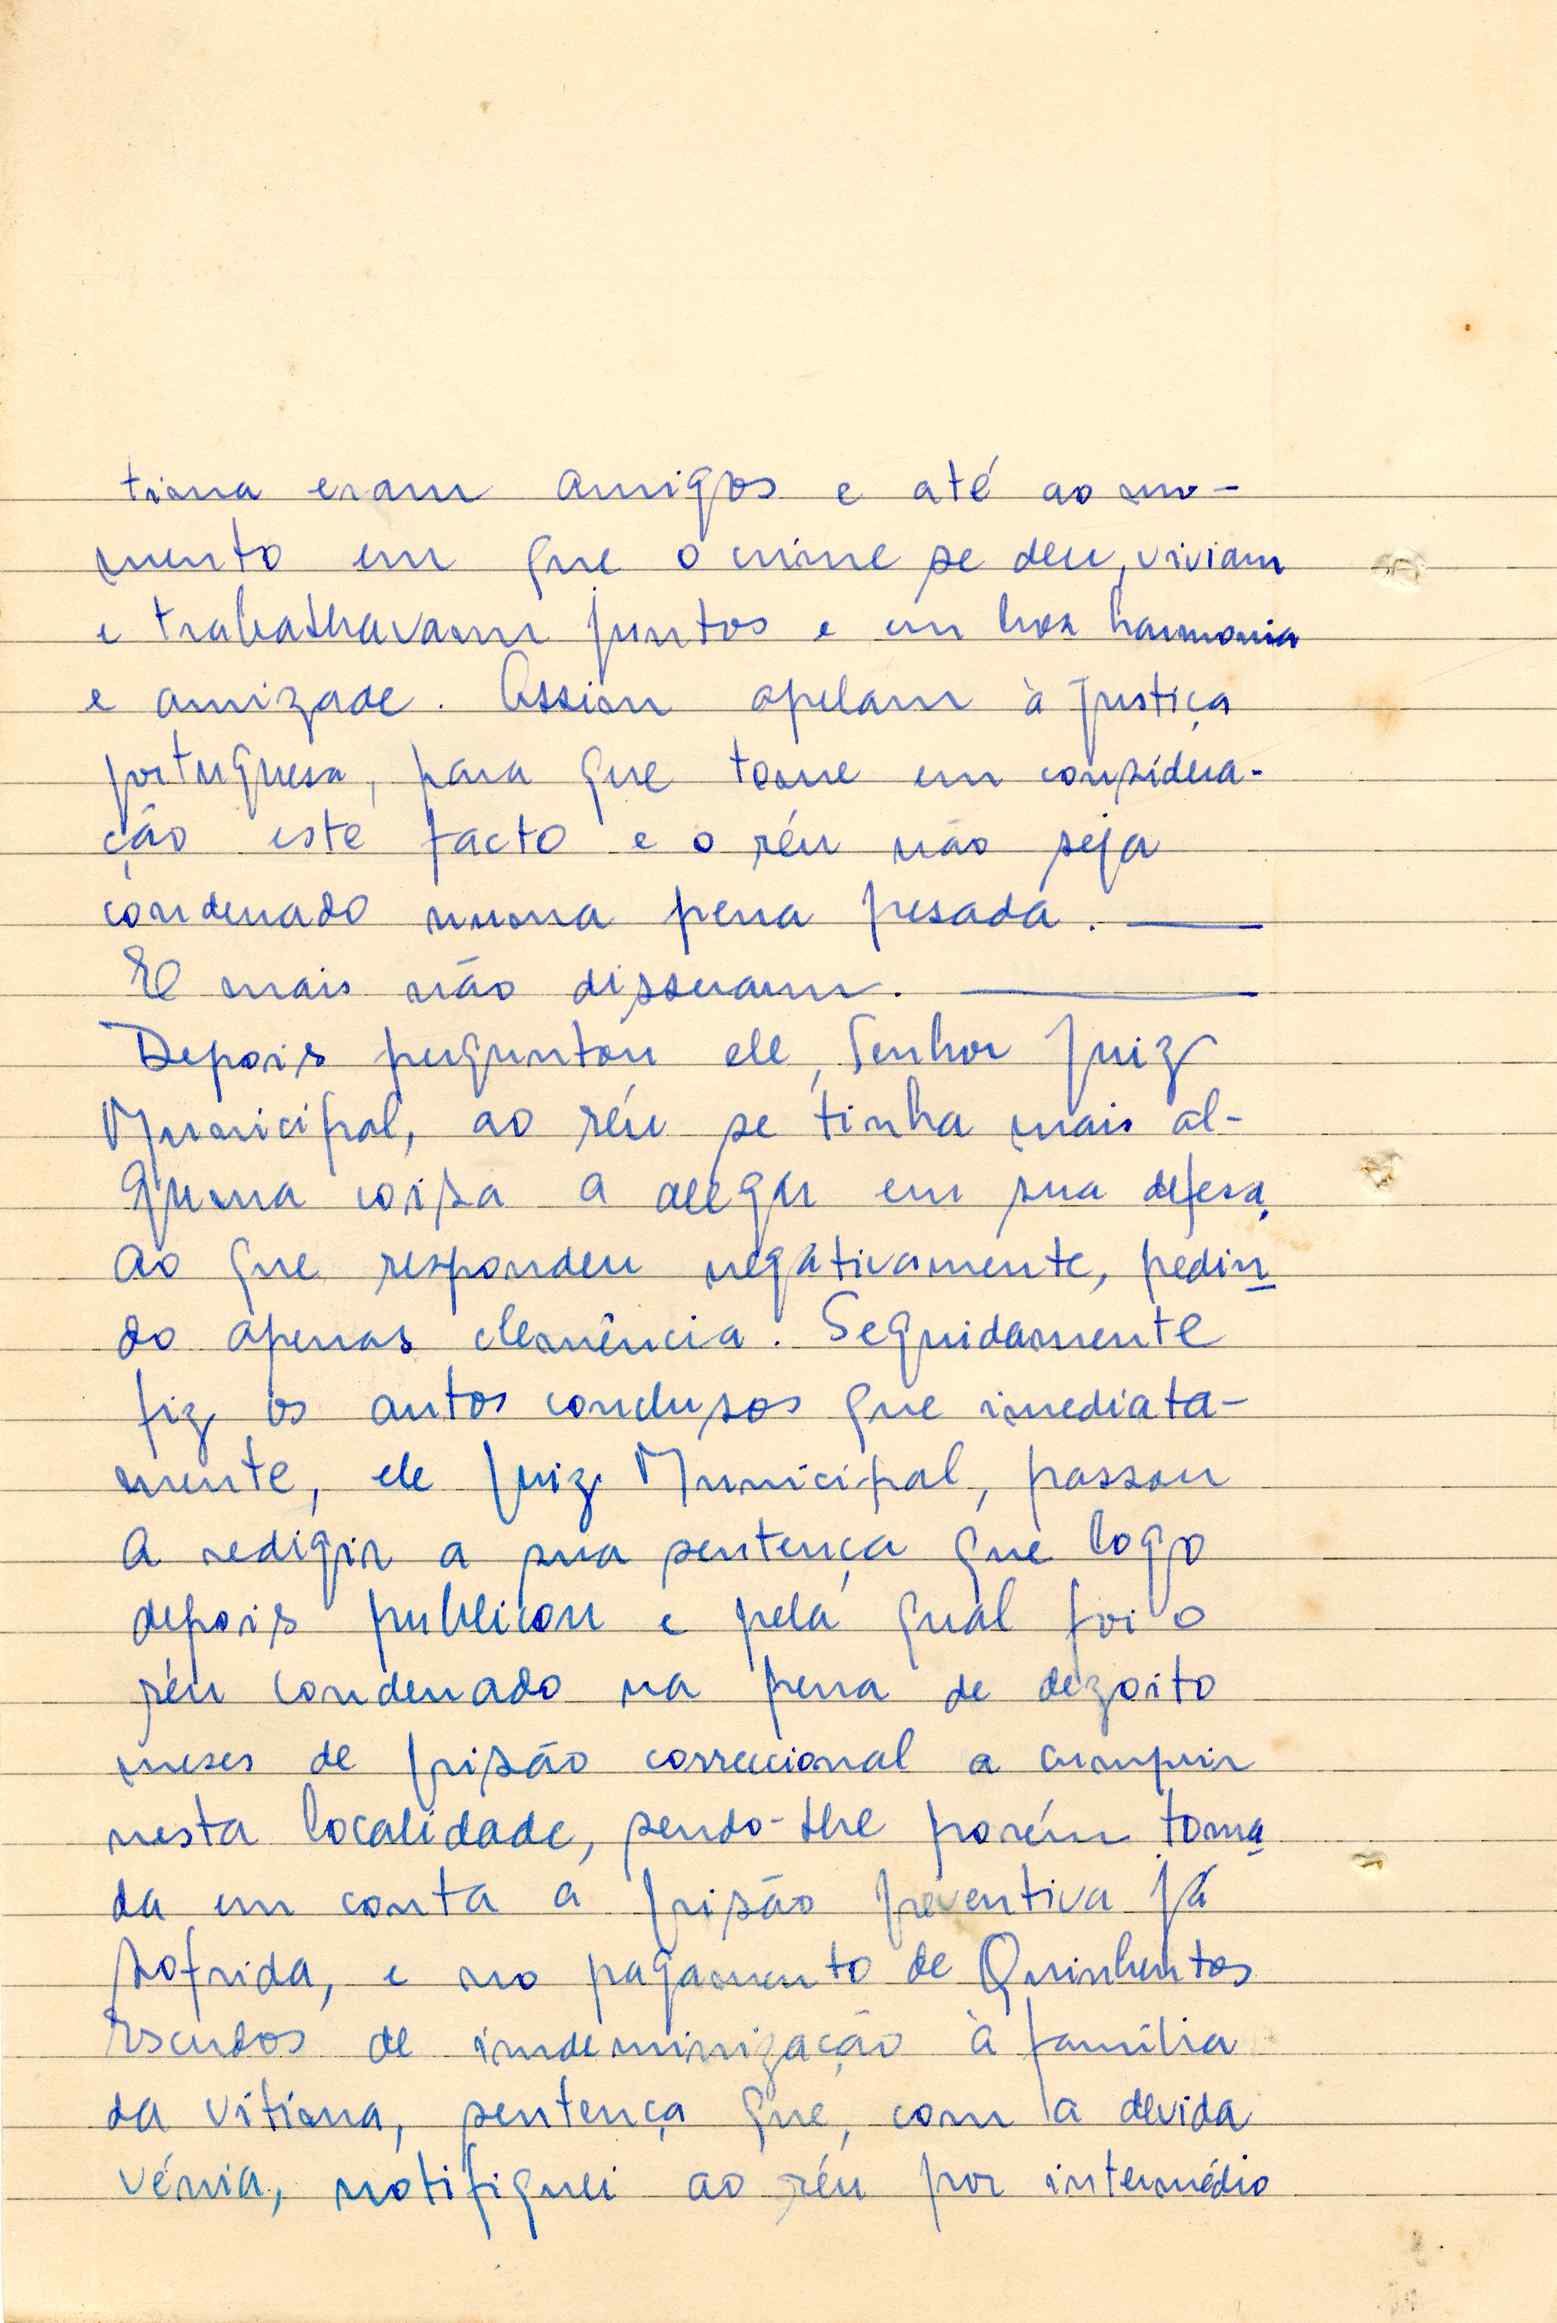 tima eram amigos e até ao mo-
mento em que o crime se deu, viviam
e trabalhavam juntos e em boa harmonia
e amizade. Assim apelam à Justiça
portuguesa, para que tome em considera-
ção este facto e o réu não seja
condenado numa pena pesada. ———
E mais não disseram. ———
Depois perguntou ele, Senhor Juiz
Municipal, ao réu se tinha mais al-
guma coisa a alegar em sua defesa,
ao que respondeu negativamente, pedin
do apenas clemência. Seguidamente
fiz os autos conclusos que imediata-
mente, ele Juiz Municipal, passou
a redigir a sua sentença que logo
depois publicou e pela qual foi o
réu condenado na pena de dezoito
meses de prisão correccional a cumprir
nesta localidade, sendo-lhe porém toma
da em conta a prisão preventiva já
sofrida, e no pagamento de Quinhentos
Escudos de indeminização à família
da vítima, sentença que, com a devida
vénia, notifiquei ao réu por intermédio